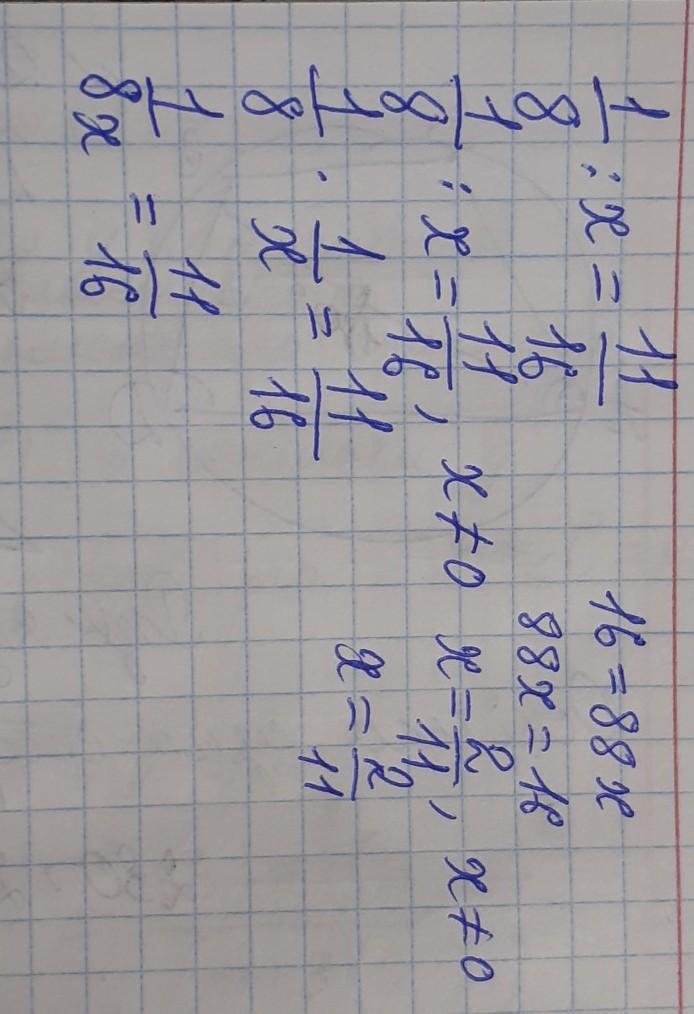 1/8 : x = 11/16
1/8 : x = 11/16, x ≠ 0
1/8 · 1/x = 11/16
1/8x = 11/16
16 = 88x
88x = 16
x = 2/11, x ≠ 0
x = 2/11